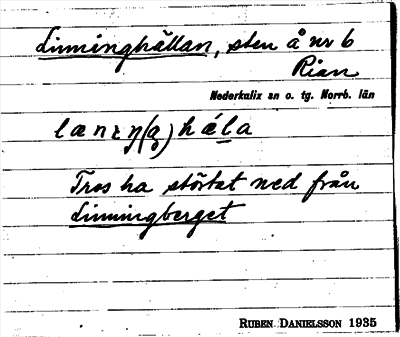 Linninghällan, sten å nr 6
Rian
Nederkalix sn o. tg. Norrb. län
Tros ha störtat ned från
Linningberget
RUBEN DANIELSSON 1935